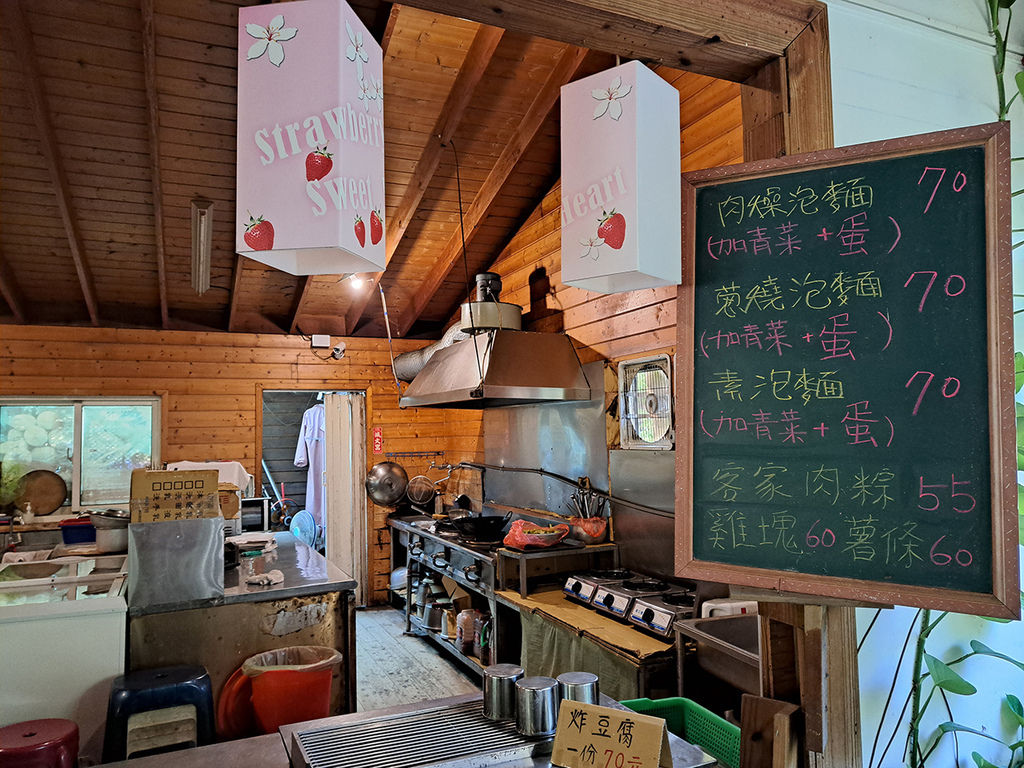 Strawberr
Sweet
Heart
肉燥泡麵 70
(加青菜+蛋)
蔥燒泡麵 70
(加青菜+蛋)
素泡麵 70
(加青菜+蛋)
客家肉粽 55
雞塊60 薯條60
炸豆腐
一份70元